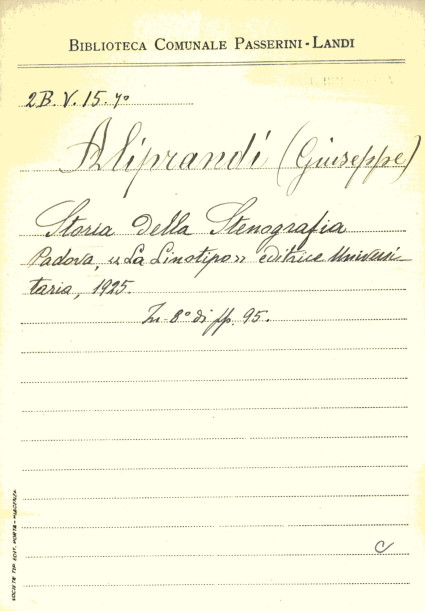 BIBLIOTECA COMUNALE PASSERINI-LANDI
2B. V. 15. 7°
Aliprandi (Giuseppe)
Storia della Stenografia
Padova, "La Linotipo" editrice Universi-
taria, 1925.
In-8° di pp. 95.
C
SOCIETÀ TIP. EDIT. PORTA - PIACENZA